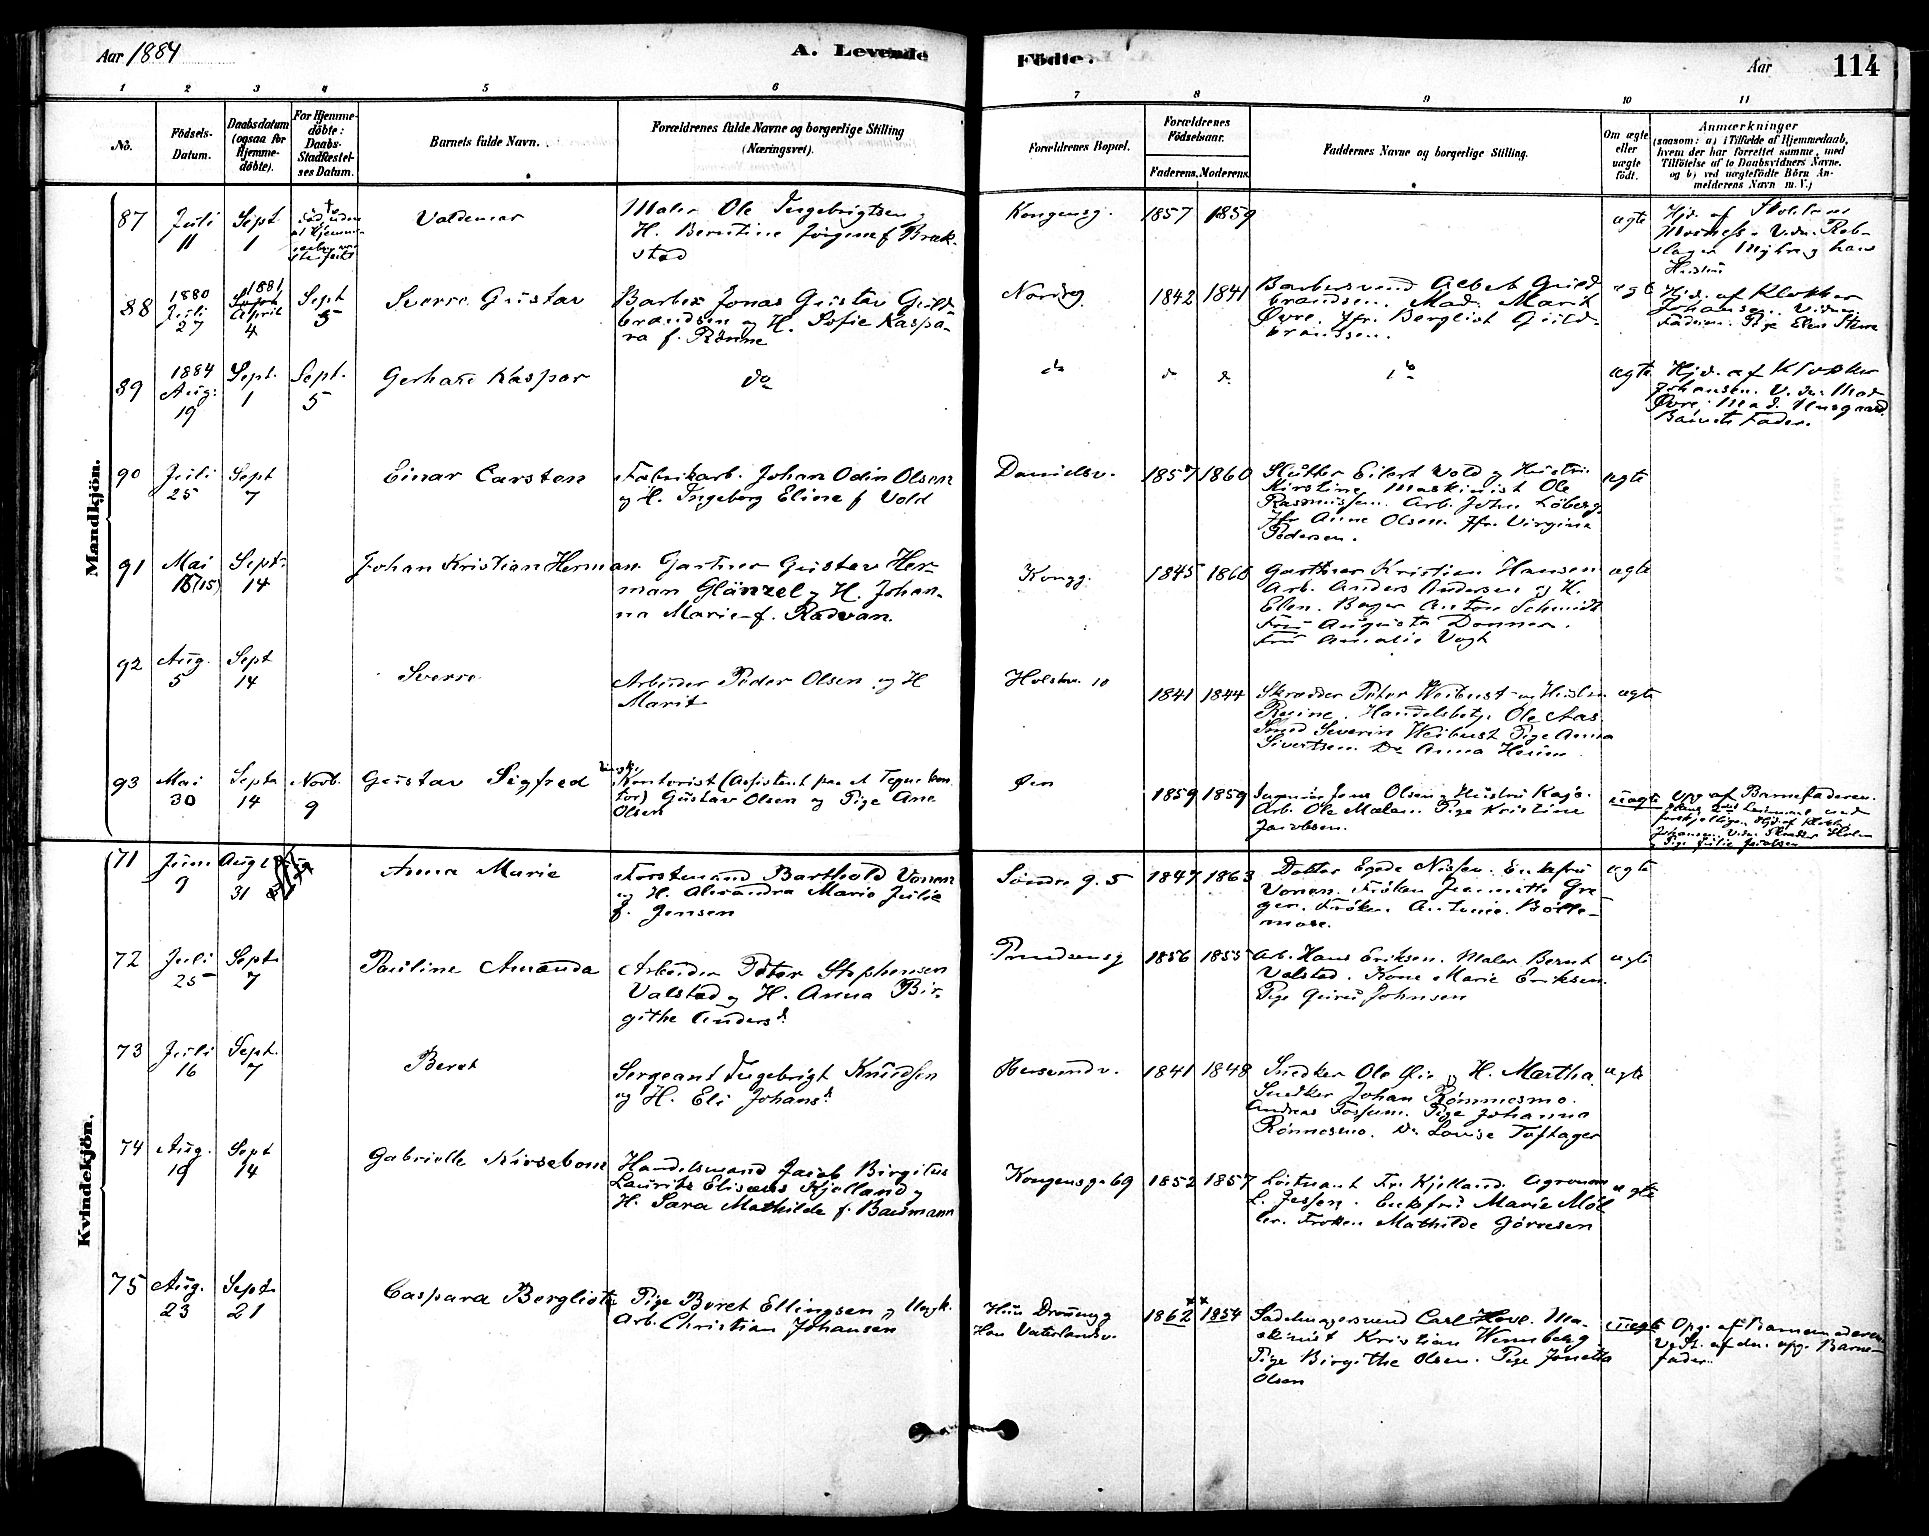 Aar 1884
A. Levende
Födte.
Aar
114
1 2 3 4 5 6 7 8 9 10 11
No.
Födsels-
Datum.
Daabsdatum
(ogsaa for
Hjemme-
döbte).
For Hjemme-
döbte:
Daabs-
Stadfæstel-
ses Datum.
Barnets fulde Navn.
Forældrenes fulde Navne og borgerlige Stilling
(Næringsvei).
Forældrenes Bopæl.
Forældrenes
Födselsaar.
Faderens. Moderens.
Faddernes Navne og borgerlige Stilling.
Om ægte
eller
uægte
födt.
Anmærkninger
(saasom: a) i Tilfælde af Hjemmedaab,
hvem der har forrettet samme, med
Tilföielse af to Daabsvidners Navne.
og b) ved uægtefödte Börn An-
melderens Navn m. V.)
Mandkjön.
87
Juli
11
Sept
1
Valdemar
Maler Ole Ingebrigtsen
H. Berntine Jörgine f. Brek-
stad
Kongensg.
1857 1859
ægte
88
1880
Juli
27
1881
April
4
Sept
5
Sverre Gustav
Barber Jonas Gustav Guld-
brandsen og H. Sofie Kaspa-
ra f. Rönne
Nordg
1842 1841
Barbersvend Albert Guld
brandsen. Mad. Marit
Øvre. Jfr. Bergliot Guld-
brandsen.
ægte
Hjd. af Klokker
Johansen. Vidn.
Fadren. Pige Elen Stene
89
1884
Aug.
19
Sept.
1
Sept.
5
Gerhard Kaspar
do
do
do
do
do
ægte
Hjd. af Klokker
Johansen. Vidn: Mad
Øvre. Mad. Husgaard.
Barnets Fader.
90
Juli
25
Sept
7
Einar Carsten
Fabrikarb. Johan Odin Olsen
og H. Ingeborg Eline f Vold
Danielsv.
1857 1860
Slutter Eilert Vold og Hustru
Kirstine. Maskinist Ole
Rasmussen. Arb. John Löberg.
Jfr Anne Olsen. Jfr. Virginie
Pedersen.
ægte
91
Mai
16 (15)
Sept.
14
Johan Kristian Herman
Gartner Gustav Her-
man Glänzel og H. Johan-
na Marie f. Radvan.
Kongg.
1845 1860
Gartner Kristian Hansen
Arb. Anders Andersen og H.
Elen. Bager Anton Schmidt
Fru Augusta Donner.
Fru Amalie Vogt
ægte
92
Aug.
5
Sept
14
Sverre
Arbeider Peder Olsen og H
Marit
Holstv. 10
1841 1844
Skrædder Peter Weibust og Hustru
Regine. Handelsbetj. Ole Aas.
Smed Severin Weibust Pige Anna
Sivertsen. Do Anna Heim
ægte
93
Mai
30
Septr
14
Novb.
9
Gustav Sigfred
Kontorist (Assistent paa et Tegnekon
tor) Gustav Olsen og Pige Ane
Olsen
Øen
1859 1859
Ingeniör Jens Olsen. Hustru Kaja.
Arb. Ole Malen. Pige Kristine
Jacobsen.
uægte
Opg. af Barnefaderen.
Kvindekjön.
71
Juni
9
Aug
31
Anna Marie
Forstmand Barthold Vonen
og H. Alexandra Marie Julie
f. Jensen
Søndre g. 5
1847 1863
Doktor Egede Nissen. Enkefru
Vonen. Fröken Jeannette Gre
gen. Fröken Antonie Bölle-
mose.
ægte
72
Juli
25
Sept.
7
Pauline Amanda
Arbeider Peter Stephensen
Valstad og H. Anna Bir-
githe Andersd.
Prindsensg
1856 1855
Arb. Hans Eriksen. Maler Bernt
Valstad. Kone Marie Eriksen.
Pige Guru Johnsen
ægte
73
Juli
16
Sept.
7
Beret
Sergeant Ingebrigt Knudsen
og H. Eli Johansd.
1841 1848
Snedker Ole Øie og H. Martha.
Snedker Johan Rønnesmo.
Andreas Fossum. Pige Johanna
Rönnesmo. Do Louise Toftager
ægte
74
Aug.
19
Sept
14
Gabrielle Kirsebom
Handelsmand Jacob Birgitus
Laurits Elisæus Kjelland og
H. Sara Mathilde f. Bachmann
Kongensg. 69
1852 1857
Löitnant Fr. Kjelland. Agronom
L. Jessen. Enkefru Marie Möl
ler. Fröken Mathilde Görresen
ægte
75
Aug.
23
Sept.
21
Caspara Bergliot
Pige Beret Ellingsen og Ungk.
Arb. Christian Johansen
Hun Dronning
Han Vaterlandsv.
1862 1854
Sadelmagersvend Carl Hove. Ma-
skinist Kristian Wennberg
Pige Birgithe Olsen. Pige Jonetta
Olsen
uægte
Opg. af Barnemoderen
Vedt. af den opg. Barne-
fader.